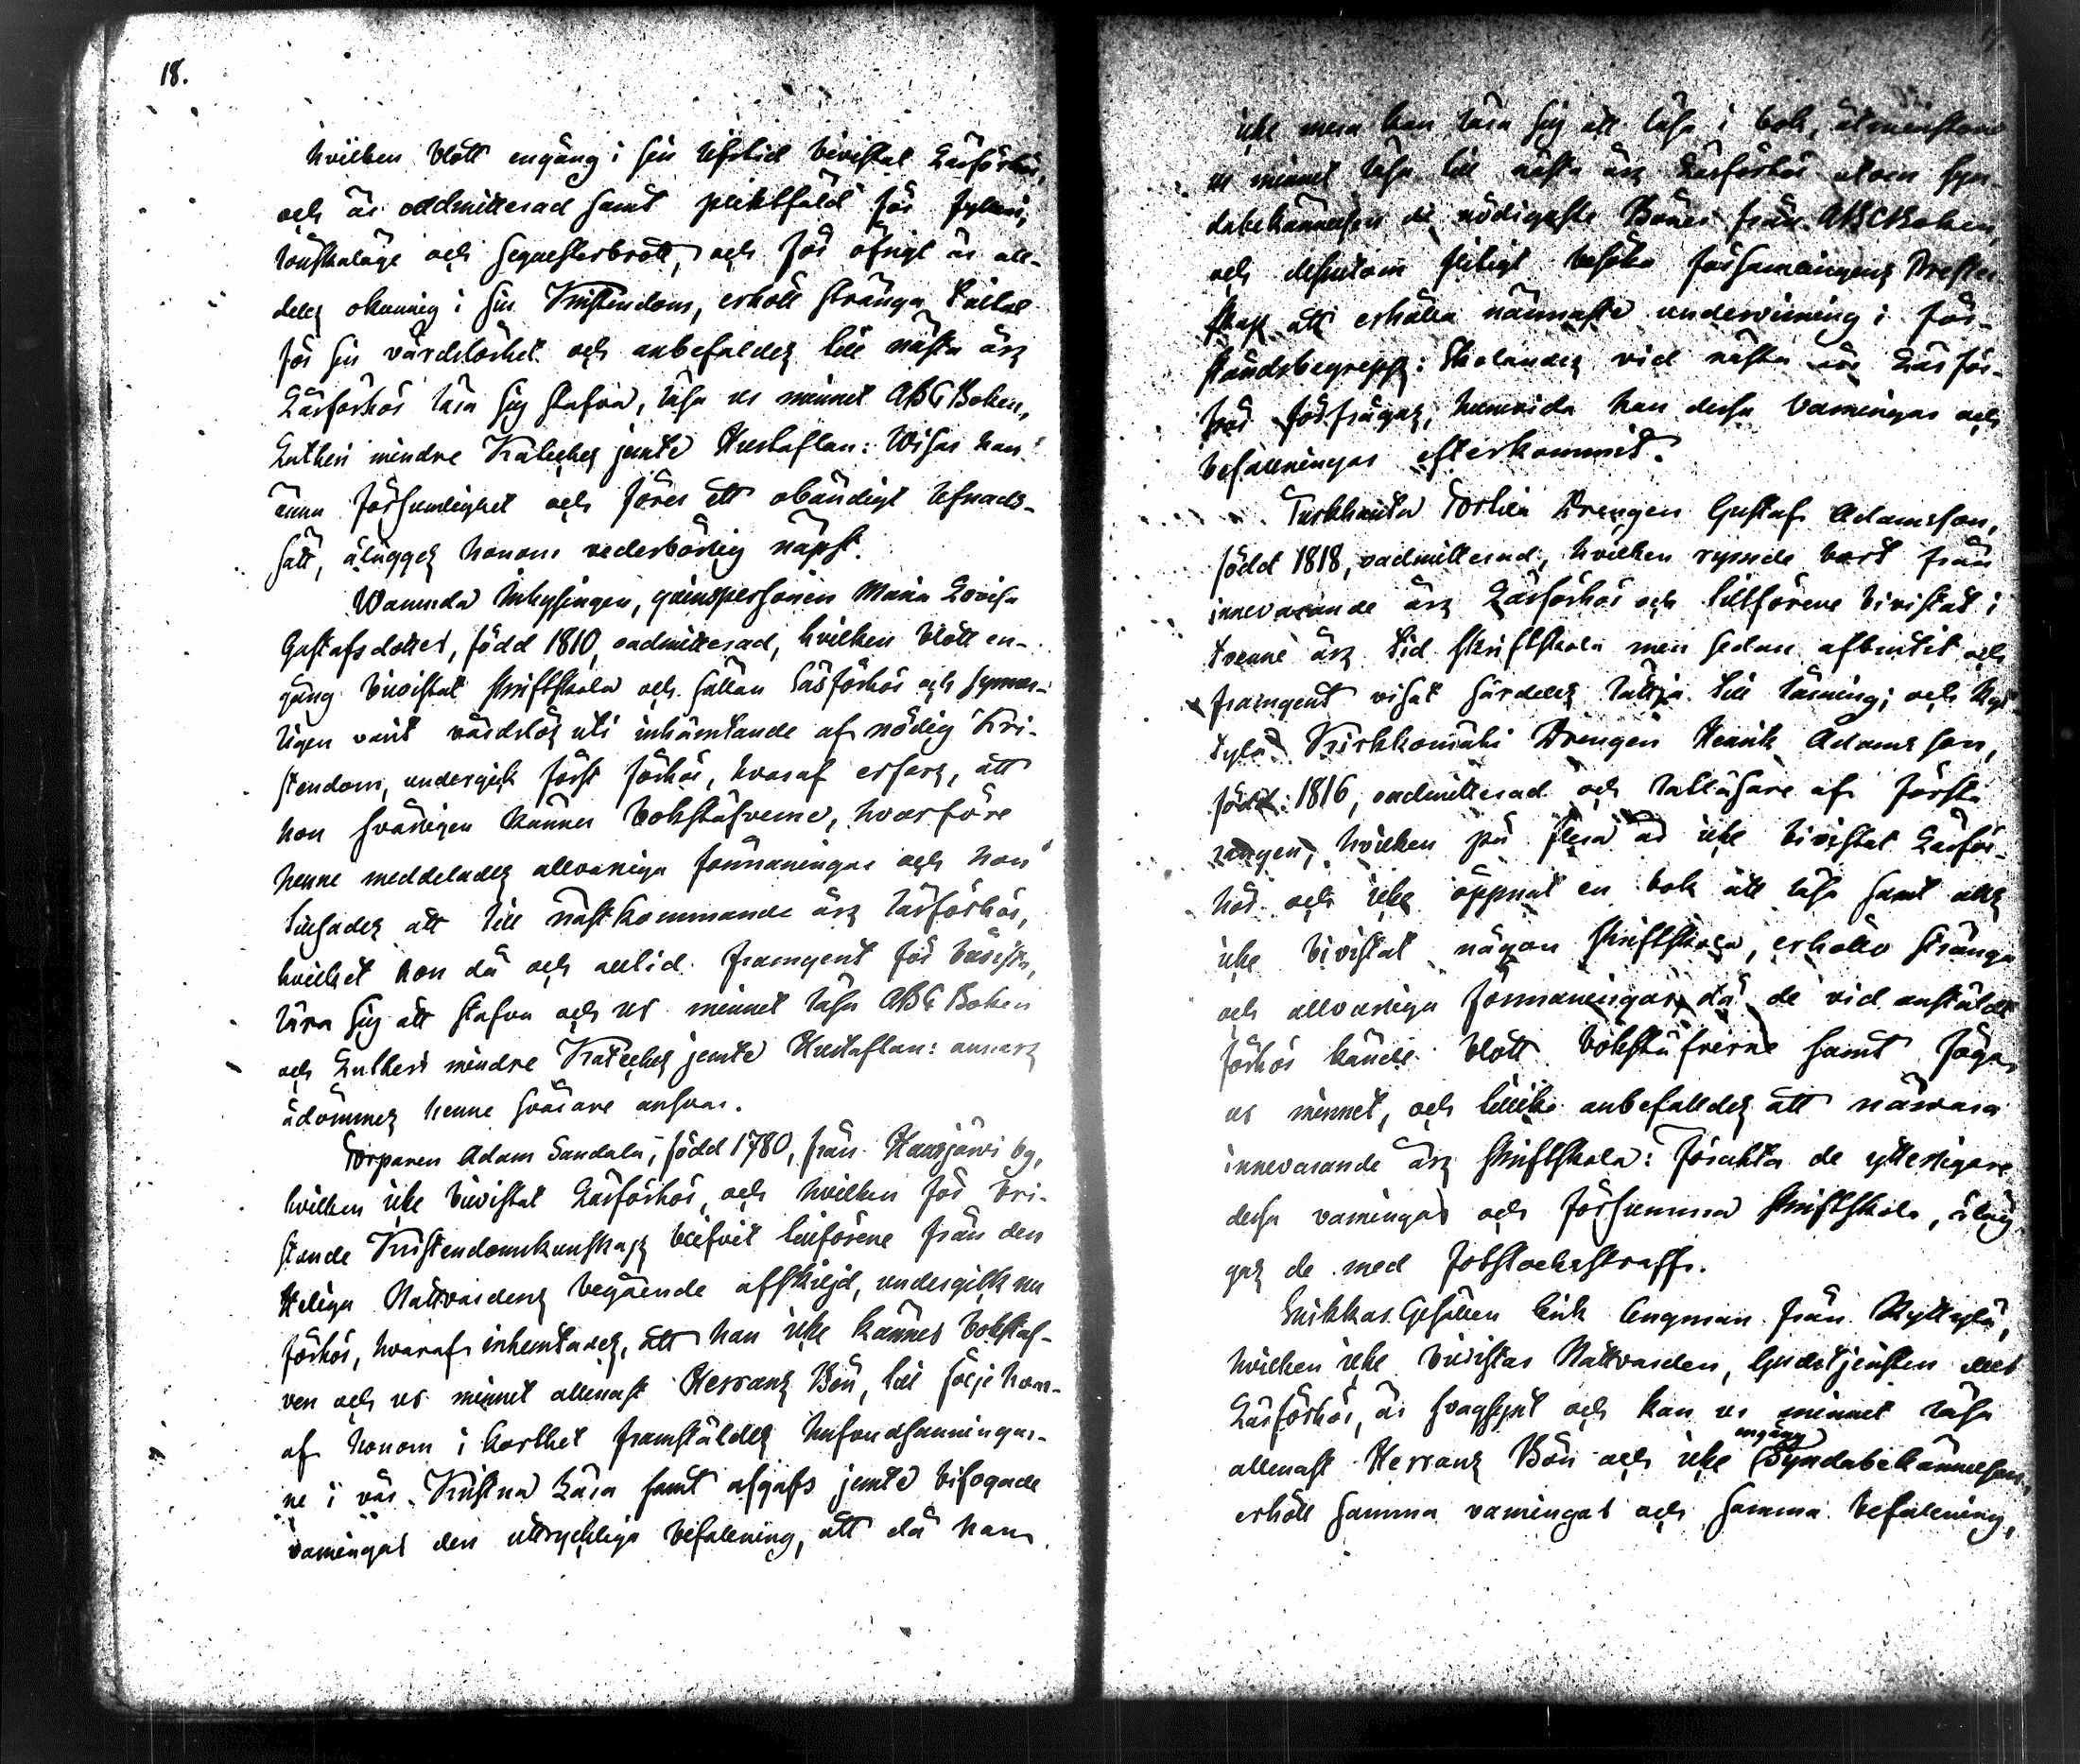 18.
hvilken blott engång i sin lifstid bivistat Läsförhör,
och är oadmitterad samt pliktfäld för fylleri,
lönskaläge och sequesterbrott, och för öfrigt är all-
deles okunnig i sin Kristendom, erhöll stränga tilltal
för sin vårdslöshet och anbefaldes till nästa års
Läsförhör lära sig stafva, läsa ur minnet ABC Boken,
Lutheri mindre Kateches jemte Hustaflan: Wisar han
ännu försumlighet och förer ett obändigt lefnads-
sätt, ålägges honom vederbörlig näpst.
Wannda Inhysingen, qvinspersonen Maria Lovisa
Gustafsdotter, född 1810, oadmitterad, hvilken blott en-
gång bivistat skriftskola och sällan läsförhör och synner-
ligen varit vårdslös uti inhämtande af nödig Kri-
stendom, undergick först förhör, hvaraf erfars, att
hon svårligen känner bokstäfverne, hvarföre
henne meddelades allvarliga förmaningar och hon
tillsades att till nästkommande års läsförhör,
hvilket hon då och alltid framgent får bivista,
lära sig att stafva och ur minnet läsa ABC Boken
och Lutheri mindre Kateches jemte Hustaflan: annars
ådömmes henne svårare ansvar.
Torparen Adam Sandala, född 1780, från Hausjärvi by,
hvilken icke bivistat Läsförhör, och hvilken för bri-
stande Kristendomskunskap blifvit tillförene från den
Heliga Nattvardens begående afskiljd, undergick nu
förhör, hvaraf inhemtades, att han icke känner bokstäf-
ven och ur minnet allenast Herrans Bön, till följe hvar-
af honom i korthet framstäldes hufvudsanningar-
ne i vår Kristna Lära samt afgafs jemte bifogade
varningar den uttryckliga befallning, att då han
icke mera kan lära sig att läsa i bok, åtminstone
ur minnet läsa till nästa års Läsförhör utom syn-
dabekännelsen de nödigaste Böner från ABCboken,
och dessutom flitigt besöka församlingens Prester-
skap att erhålla nännaste undervisning i för-
ståndsbegrepp: Skolandes vid nästa års Läsför-
hör förfrågas, huruvida han dessa varningar och
befallningar efterkommit.
Turkhauta Torkia Drengen Gustaf Adamsson,
född 1818, oadmitterad, hvilken rymde bort från
innevarande års Läsförhör och tillförene bivistat i
trenne års tid skriftskola men sedan afbrutit och
framgent visat särdeles lättja till läsning; och Ryt-
tylä Kirkkomäki Drengen Henrik Adamsson,
född 1816, oadmitterad och tallåsare af första
rangen, hvilken på flera år icke bivistat Läsför-
hör och icke öppnat en bok att läsa samt alls
icke bivistat någon skriftskola, erhöllo stränga
och allvarliga förmaningar, då de vid anstäldt
förhör kände blott bokstäfverne samt föga
ur minnet, och lillike anbefalldes att närvara
innevarande års skriftskola: Förakta de ytterligare
dessa varningar och försumma skriftskola, åläg-
gas de med fotstockstraff.
Erikkas Gesällen Erik Engman från Ryttylä,
hvilken icke bivistar Nattvarden, Gudstjensten eller
Läsförhör, är svagsynt och kan ur minnet läsa
engång
allenast Herrans Bön och icke Syndabekännelsen,
erhöll samma varningar och samma befallning,